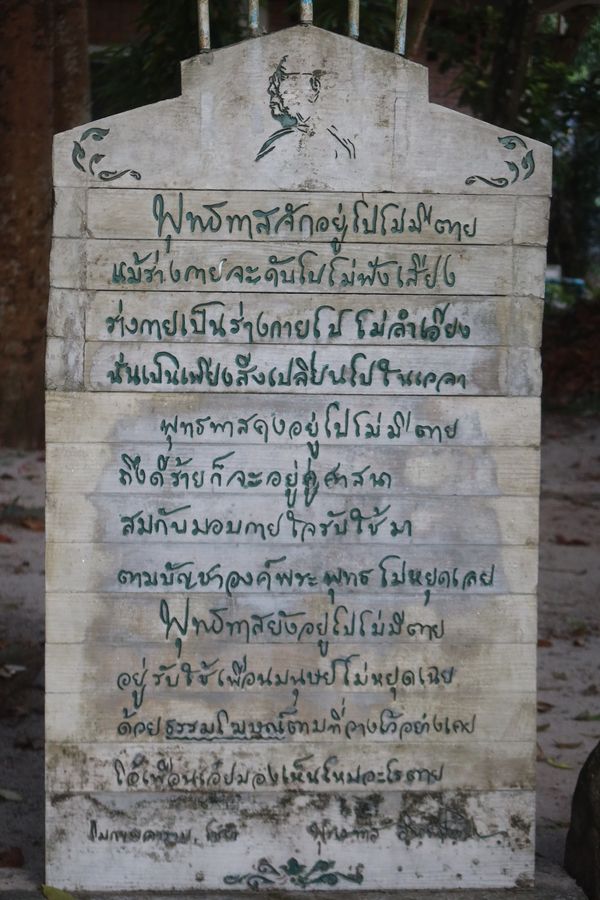 พุทธทาสจักอยู่ไปไม่มีตาย
แม้ร่างกายจะดับไปไม่ฟังเสียง
ร่างกายเป็นร่างกายไปไม่ลำเอียง
นั่นเป็นเพียงสิ่งเปลี่ยนไปในเวลา
พุทธทาสคงอยู่ไปไม่มีตาย
ถึงดีร้ายก็จะอยู่คู่ศาสนา
สมกับมอบกายใจรับใช้มา
ตามบัญชาองค์พระพุทธไม่หยุดเลย
พุทธทาสยังอยู่ไปไม่มีตาย
อยู่รับใช้เพื่อนมนุษย์ไม่หยุดเฉย
ด้วยธรรมโฆษณ์ตามที่วางไว้อย่างเคย
โอ้เพื่อนเอ๋ยมองเห็นไหมอะไรตาย
โมกขพลาราม, ไชยา พุทธทาส อินทปัญโญ